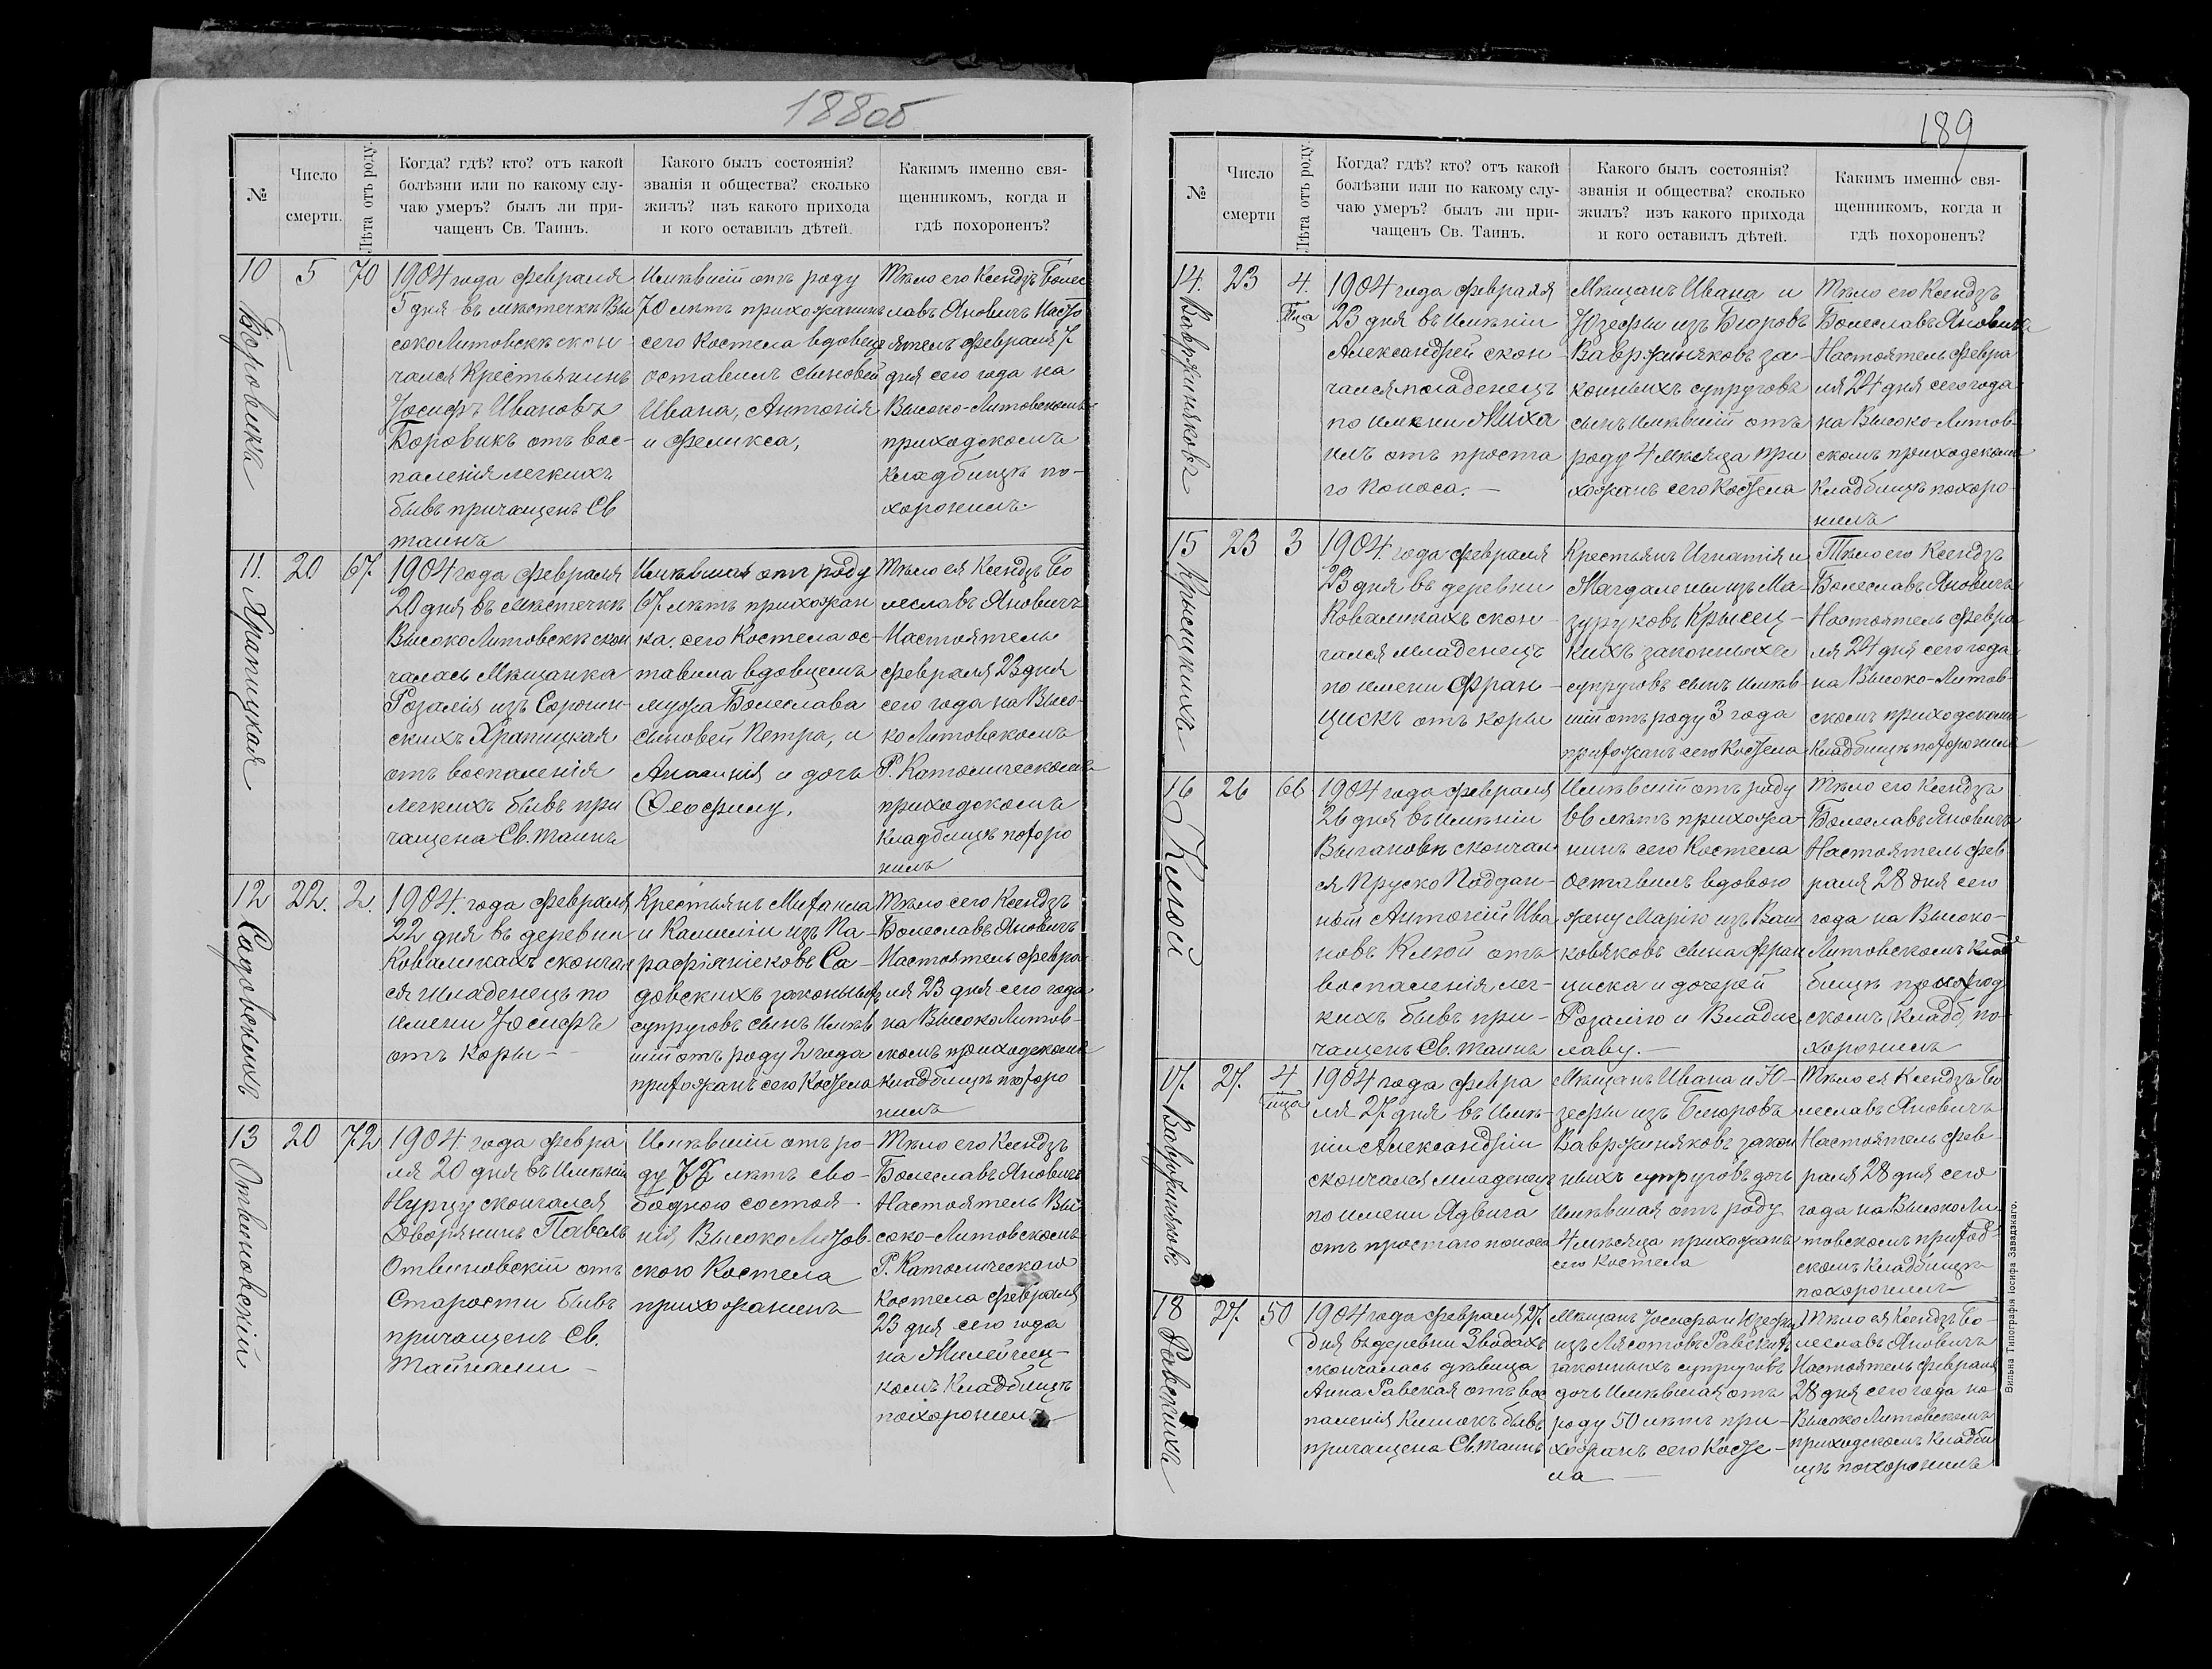 188об
№
Число
смерти.
Лѣта отъ роду.
Когда? гдѣ? кто? отъ какой
болѣзни или по какому слу-
чаю умеръ? былъ ли при-
чащенъ Св. Таинъ.
Какого былъ состоянія?
званія и общества? сколько
жилъ? изъ какого прихода
и кого оставилъ дѣтей.
Какимъ именно свя-
щенникомъ, когда и
гдѣ похороненъ?
10
Боровикъ
5
70
1904 года февраля
5 дня въ мѣстечкѣ Вы
соко Литовскѣ скон-
чался Крестьянинъ
Іосифъ Ивановъ
Боровикъ отъ вос-
паленія легкихъ
бывъ причащенъ Св
таинъ
Имѣвшій отъ роду
70 лѣтъ прихожанинъ
сего Костела вдовецъ
оставилъ сыновей
Ивана, Антонія
и Феликса,
Тѣло его Ксендзъ Болес
лавъ Яновичъ Насто
ятель февраля 7
дня сего года на
Высоко-Литовскомъ
приходскомъ
кладбищѣ по-
хоронилъ.
11.
Храпицкая
20
67.
1904 года февраля
20 дня въ мѣстечкѣ
Высоко Литовскѣ скон
чалась Мѣщанка
Розалія изъ Сорочин-
скихъ Храпицкая
отъ воспаленія
легкихъ бывъ при
чащена Св. таинъ
Имѣвшая отъ роду
67 лѣтъ прихожан
ка. сего Костела ос-
тавила вдовцемъ
мужа Болеслава
сыновей Петра, и
и дочь
Феофилу,
Тѣло ея Ксендзъ Бо
леславъ Яновичъ
Настоятель
февраля 23 дня
сего года на Высо-
ко Литовскомъ
Р. Католическомъ
приходскомъ
кладбищѣ похоро
нилъ
12
Садовскихъ
22.
2.
1904. года февраля
22 дня въ деревни
Коваликахъ скончал
ся младенецъ по
имени Іосифъ
отъ кори -
Крестьянъ Михаила
и Камиліи изъ Па-
рафіянчиковъ Са-
довскихъ законныхъ
супруговъ сынъ имѣв
шій отъ роду 2 года
прихожанъ сего Костела
Тѣло сего Ксендзъ
Болеславъ Яновичъ
Настоятель февра
ля 23 дня сего года
на Высоко Литов-
скомъ приходскомъ
кладбищѣ похоро
нилъ
13
Отвиновскій
20
72
1904 года февра
ля 20 дня въ имѣніи
Нурцу скончался
Дворянинъ Павелъ
Отвиновскій отъ
старости бывъ
причащенъ Св.
Тайнами -
Имѣвшій отъ ро-
ду 72 лѣтъ сво-
боднаго состоя-
нія, Высоко Литов
скаго Костела
прихожанинъ
Тѣло его Ксендзъ
Болеславъ Яновичъ
Настоятель Вы
соко-Литовскомъ
Р. Католическаго
костела февраля
23 дня сего года
на Милейчиц-
комъ Кладбищѣ
похоронилъ
189
№
Число
смерти
Лѣта отъ роду.
Когда? гдѣ? кто? отъ какой
болѣзни или по какому слу-
чаю умеръ? былъ ли при-
чащенъ Св. Таинъ.
Какого былъ состоянія?
званія и общества? сколько
жилъ? изъ какого прихода
и кого оставилъ дѣтей.
Какимъ именно свя-
щенникомъ, когда и
гдѣ похороненъ?
14.
Вавржиняковъ
23
4.
1904 года февраля
23 дня въ имѣніи
Александрей скон-
чался младенецъ
по имени Миха
илъ отъ проста
го поноса. -
Мѣщанъ Ивана и
Юзефы изъ Бюровъ
Вавржиняковъ за-
конныхъ супруговъ
сынъ имѣвшій отъ
роду 4 мѣсяца при
хожанъ сего Костела
Тѣло его Ксендзъ
Болеславъ Яновичъ
Настоятель февра
ля 24 дня сего года
на Высоко-Литов-
скомъ приходскомъ
кладбищѣ похоро-
нилъ
15
Крысицкихъ
23
3
1904 года февраля
23 дня въ деревни
Коваликахъ скон-
чался младенецъ
по имени Фран-
цискъ отъ кори
Крестьянъ Игнатія и
Магдалены изъ Ма-
зуруковъ Крысиц-
кихъ законныхъ
супруговъ сынъ имѣв-
шій отъ роду 3 года
прихожанъ сего Костела
Тѣло его Ксендзъ
Болеславъ Яновичъ
Настоятель февра
ля 24 дня сего года
на Высоко-Литов-
скомъ приходскомъ
кладбищѣ похоронилъ
16
Клюй
26
66
1904 года февраля
26 дня въ имѣніи
Выгановѣ скончал
ся Пруско Поддан-
ный Антоній Ива
новъ Клюй отъ
воспаленія лег-
кихъ бывъ при-
чащенъ Св. таинъ
Имѣвшій отъ роду
66 лѣтъ прихожа
нинъ сего Костела
оставилъ вдовою
жену Марію изъ Ваш
ковяковъ сына Фран
циска и дочерей
Розалію и Владис
лаву. -
Тѣло его Ксендзъ
Болеславъ Яновичъ
Настоятель фев
раля 28 дня сего
года на Высоко-
Литовскомъ клад
бищѣ приход
скомъ (кладб) по-
хоронилъ
17.
Вавржиняковъ
27.
4
1904 года февра
ля 27 дня въ имѣ-
ніи Александріи
скончался младенецъ
по имени Ядвига
отъ простаго поноса
Мѣщанъ Ивана и Ю-
зефы изъ Бюровъ
Вавржиняковъ закон
ныхъ супруговъ дочь
имѣвшая отъ роду
4 мѣсяца прихожанъ
сего Костела
Тѣло ея Ксендзъ Бо
леславъ Яновичъ
Настоятель фев-
раля 28 дня сего
года на Высоко Ли
товскомъ приход-
скомъ Кладбищѣ
похоронилъ
18
Равскихъ
27.
50
1904 года февраля 27.
дня въ деревни Зводахъ
скончалась дѣвица
Анна Равская отъ вос
паленія кишокъ бывъ
причащена Св. таинъ
Мѣщанъ Іосифа и Юзефы
изъ Лясотовъ Равскихъ
законныхъ супруговъ
дочь имѣвшая отъ
роду 50 лѣтъ при-
хожанъ сего Косте-
ла
Тѣло ея Ксендзъ Бо-
леславъ Яновичъ
Настоятель февраля
28 дня сего года на
Высоко Литовскомъ
приходскомъ кладби
щѣ похоронилъ
Вильна Типографія Іосифа Завадзкаго.